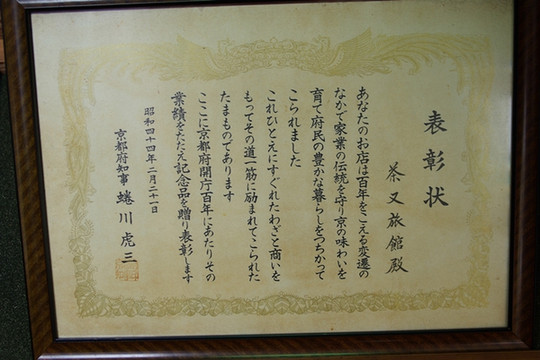 表彰状
茶又旅館殿
あなたのお店は百年をこえる変遷の
なかで家業の伝統を守り京の味わいを
育て府民の豊かな暮らしをつちかって
こられました
これひとえにすぐれたわざと商いを
もってその道一筋に励まれてこられた
たまものであります
ここに京都府開庁百年にあたりその
業績をたたえ記念品を贈り表彰します
昭和四十四年二月二十一日
京都府知事 蜷川虎三